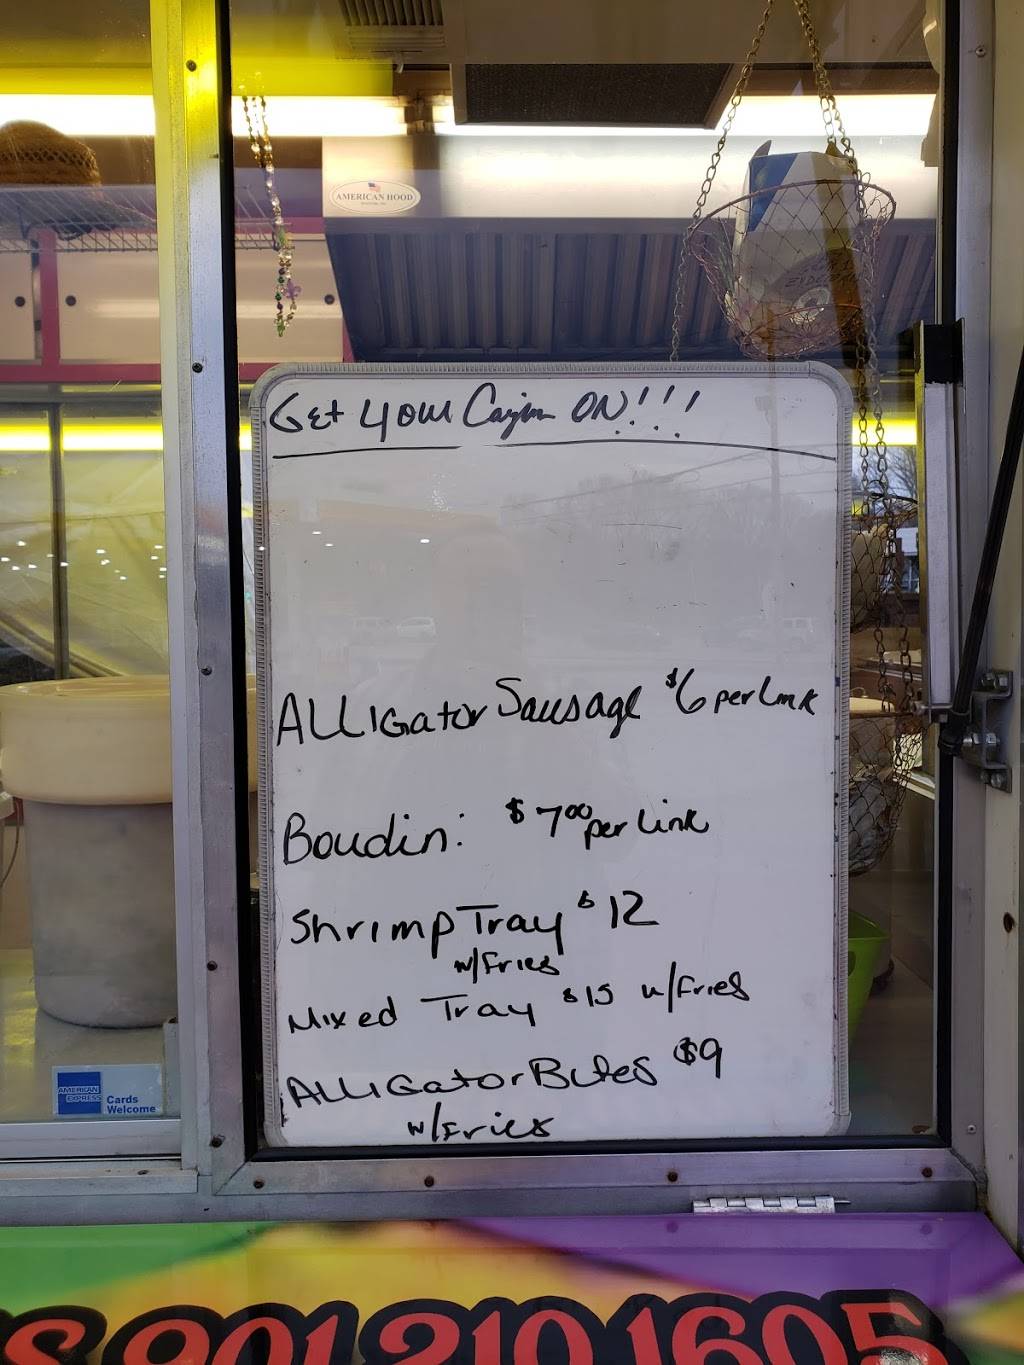 AMERICAN HOOD
Get your Cajun ON!!!
Alligator Sausage $6 per Link
Boudin: $7.00 per Link
Shrimp Tray $12
w/Fries
Mixed Tray $15 w/Fries
Alligator Bites $9
w/Fries
AMERICAN
EXPRESS
Cards
Welcome
901 210 1605